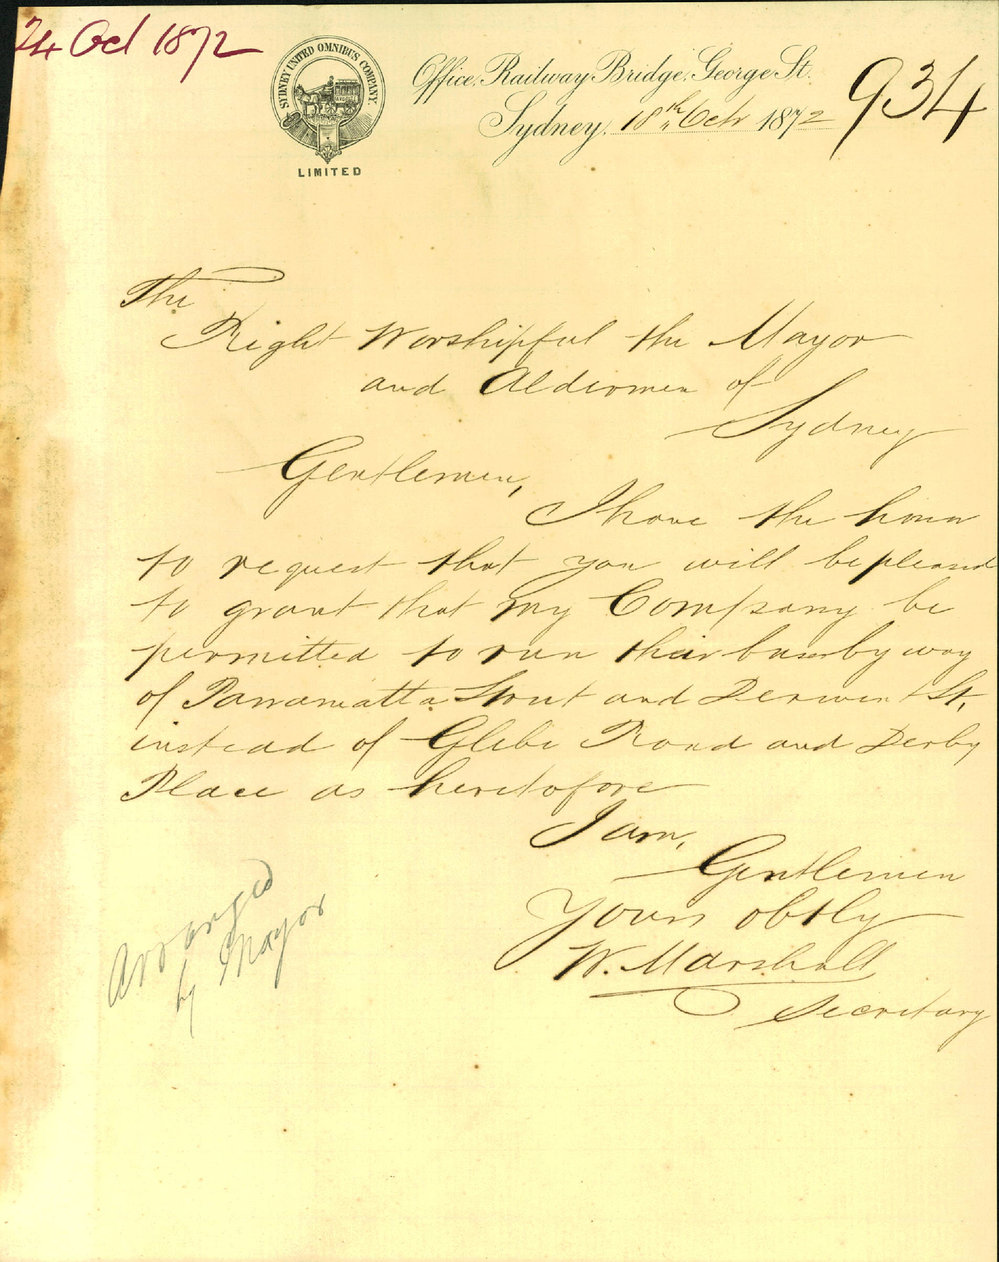 24 Oct 1872
SYDNEY UNITED OMNIBUS COMPANY.
LIMITED
Office, Railway Bridge, George St.
Sydney, 18th Octr 1872
934
The
Right Worshipful the Mayor
and Aldermen of
Sydney
Gentlemen,
I have the honor
to request that you will be pleased
to grant that my Company be
permitted to run their buses by way
of Parramatta Street and Derwent St,
instead of Glebe Road and Derby
Place as heretofore
I am,
Gentlemen
Yours obtly
W. Marshall
Secretary
Arranged
by Mayor